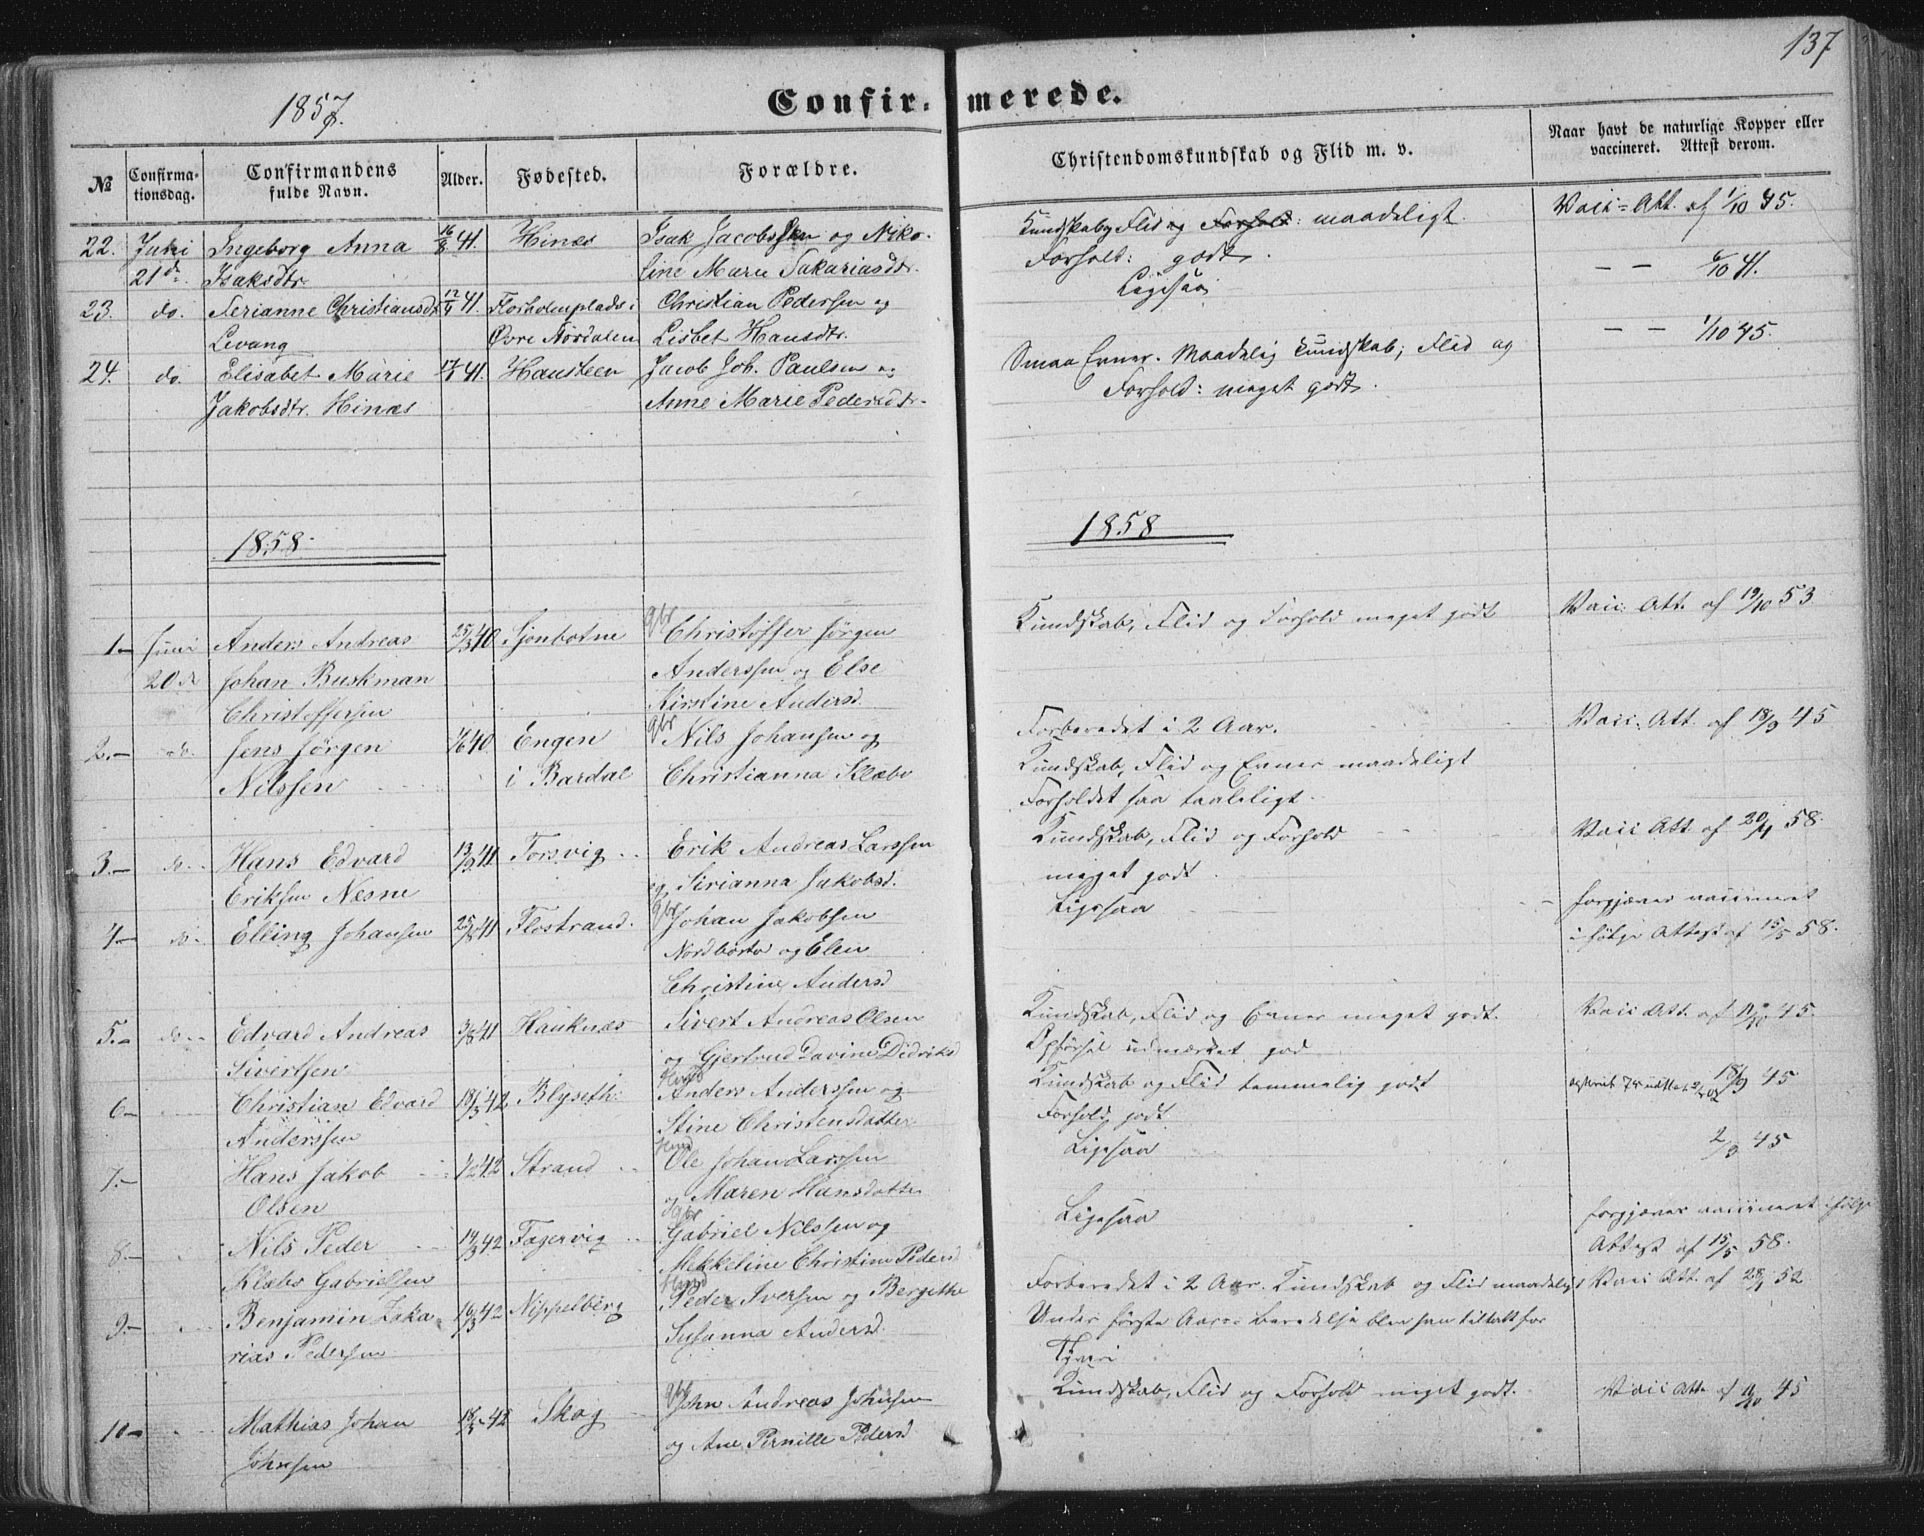 137
1857.
Confir- merede.
№
Confirmationsdag.
Confirmandens fulde Navn.
Alder.
Fødested.
Forældre.
Christendomskundskab og Flid m. v.
Naar havt de naturlige Kopper eller vaccineret. Attest derom.
22. Juni Ingeborg Anna 16/8 41. Hinæs Isak Jacobssen og Niko- Kundskab, Flid og Forhold: maadeligt. Vacc. Att. af 1/10 45.
21de Isaksdtr. line Marie Sakariasdtr. Forholt: godt.
23. do. Serianne Christiansdtr 12/9 41. Florholmplads i Christian Pedersen og Ligesaa — — 6/10 41.
Levang Øvre Nordalen Lisbet Hansdtr.
24. do. Elisabet Marie 17/1 41. Hausteen Jacob Joh. Paulsen og Smaa Evner. Maadelig Kundskab; Flid og — — 1/10 45.
Jakobsdtr. Hinæs Anne Marie Pedersdtr. Forholt: meget godt.
1858. 1858
1.— Juni Anders Andreas 25/3 40 Sjonbotne gbr Christoffer Jørgen Kundskab, Flid og Forhold meget godt Vacc. Att. af 19/10 53
20de Johan Buskman Anderssen og Else
Christoffersen Kirstine Andersd
2.— do. Jens Jørgen 1/6 40. Engen gbr Nils Johansen og Forberedet i 2 Aar. Vacc. Att. af 18/9 45
Nilssen i Bardal Christianna Klæbo Kundskab, Flid og Evner maadeligt
Forholdet saa taaleligt.
3.— do. Hans Edvard 13/9 41 Torsvig Erik Andreas Larssen Kundskab, Flid og Forhold Vacc Att. af 20/4 58.
Eriksen Nesne og Sirianna Jakobsd. meget godt.
4.— do. Elling Johansen 25/8 41 Flostrand. gbr Johan Jakobsen Ligesaa forgjæves vaccineret
Nordbostø og Elen i følge Attest af 15/5 58.
Christine Andersd
5.— do. Edvard Andreas 3/8 41 Hauknæs Sivert Andreas Olsen Kundskab, Flid og Evner meget godt. Vacc Att. af 11/10 45.
Sivertsen og Gjertrud Davine Didriksd Opførsel udmærket god
6.— Christian Edvard 18/3 42 Blyseth. Husmd Anders Anderssen og Kundskab og Flid temmelig godt 18/9 45
Anderssen Stine Christensdatter Forhold godt.
7.— Hans Jakob 1/2 42 Strand Husmd Ole Johan Larssen Ligesaa 2/9 45
Olsen og Maren Hansdatter
8.— Nils Peder 19/3 42 Fagervig gbr Gabriel Nilssen og Ligesaa forgjæves vaccineret i følge
Klæbo Gabrielssen Mekkeline Christine Pedersd Attest af 15/5 58.
9.— Benjamin Zaka- 16/3 42 Nippelberg Husmd Peder Iversen og Bergithe Forberedet i 2 Aar. Kundskab og Flid maadeligt Vacc Att. af 28/1 52
rias Pedersen Susanna Andersd. Under første Aars Beredelse blev han tiltalt for
Tyveri
10— Mathias Johan 18/5 42 Skog gbr John Andreas Johnsen Kundskab, Flid og Forhold meget godt. Vacc Att. af 11/10 45
Johnsen og Ane Pernille Pedersd